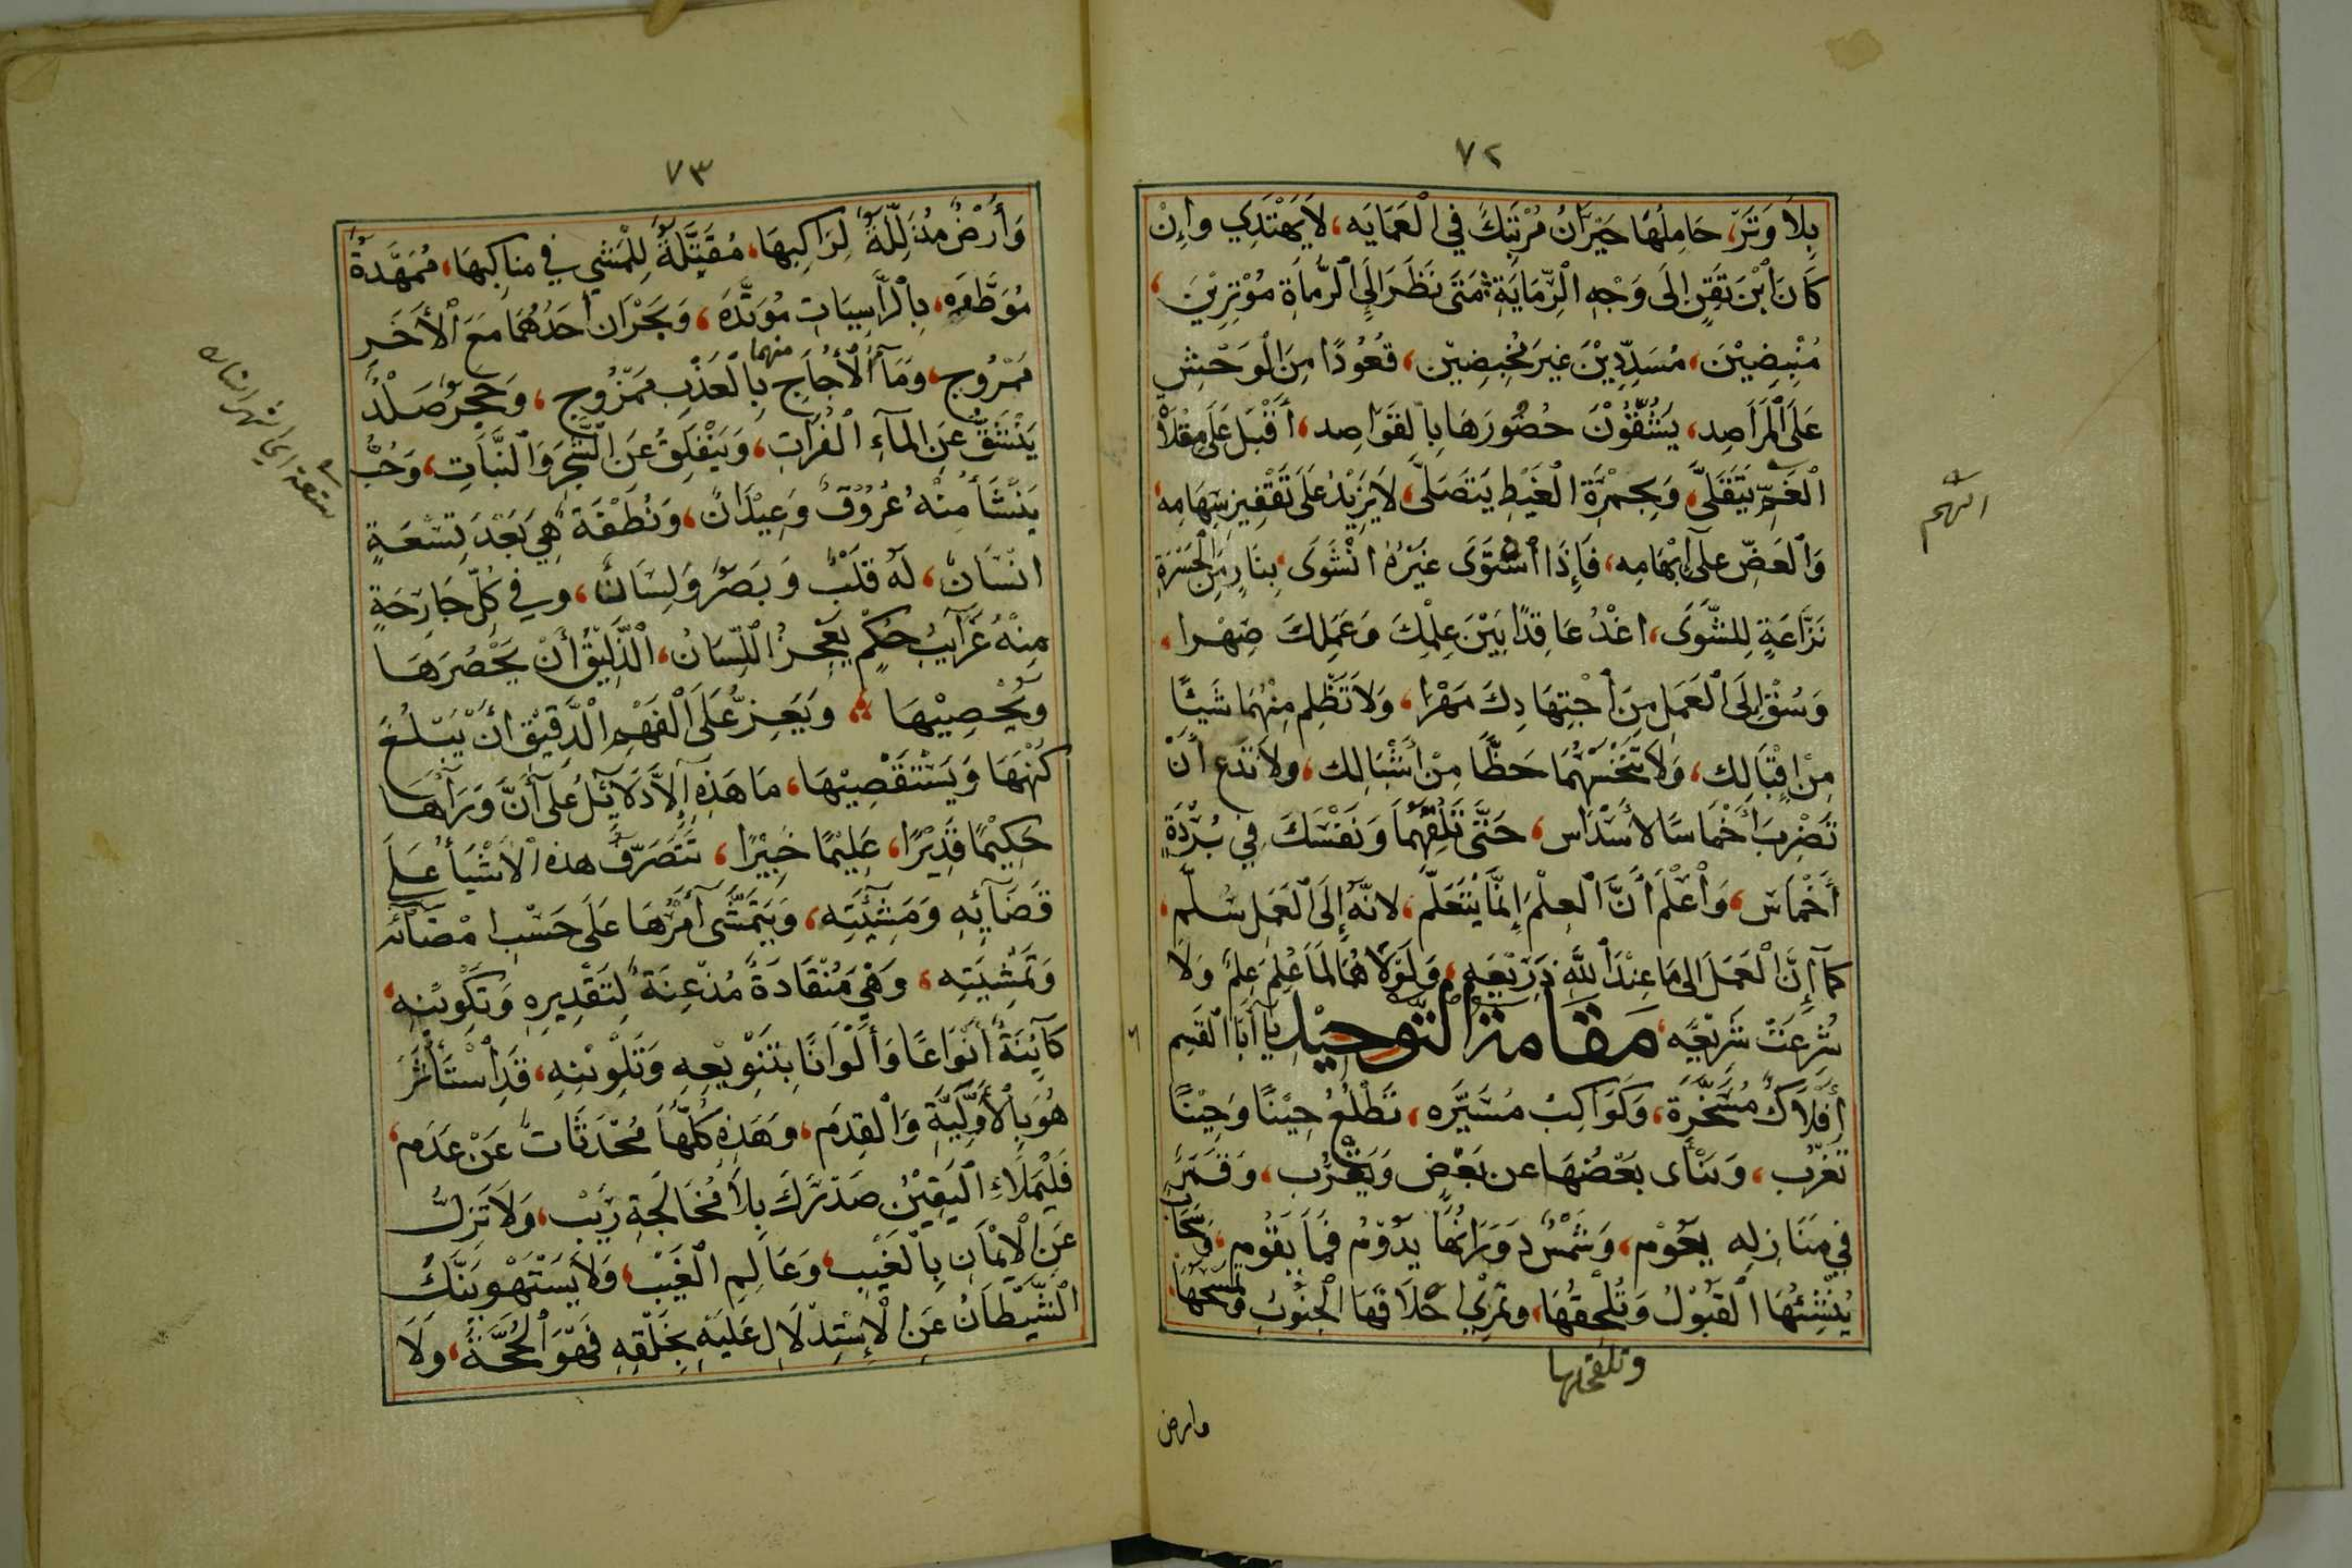 ٧٢
بِلَا وَتَرٍ، حَامِلُهَا حَيْرَانُ مُرْتَبِكٌ فِي الْعَمَايَه، لَا يَهْتَدِي وَإِنْ
كَانَ ابْنَ تِقْنٍ إِلَى وَجْهِ الرِّمَايَةِ، مَتَى نَظَرَ إِلَى الرُّمَاةِ مُوْتِرِيْنَ،
مُنْبِضِيْنَ، مُسَدِّدِيْنَ غَيْرَ مُخْبِضِيْن، قُعُودًا مِنَ الْوَحْشِ
عَلَى الْمَرَاصِد، يَشُقُّوْنَ خُصُورَهَا بِالقَوَاصِد، أَقْبَلَ عَلَى مِقْلَاةِ
الْغَمِّ يَتَقَلَّى، وَبِجَمْرَةِ الْغَيْظِ يَتَصَلَّى، لَا يَزِيْدُ عَلَى تَقْفِيزِ سِهَامِه،
السهم
وَالْعَضِّ عَلَى إِبْهَامِه، فَإِذَا اشْتَوَى غَيْرُهُ انْشَوَى، بِنَارٍ مِنَ الْحَسْرَةِ
نَزَّاعَةٍ لِلشَّوَى، اغْدُ عَاقِدًا بَيْنَ عِلْمِكَ وَعَمَلِكَ صِهْرا،
وَسُقْ إِلَى الْعَمَلِ مِنَ اجْتِهَادِكَ مَهْرَا، وَلَا تَظْلِم مِنْهُمَا شَيْئًا
مِنْ إِقْبَالِك، وَلَا تَبْخَسْهُمَا حَظًّا مِنْ أَشْبَالِك، وَلَا تَدَع أَنْ
تَضْرِبَ أَخْمَاسًا لأَسْدَاس، حَتَّى تُلْفِيَهُمَا وَنَفْسَكَ فِي بُرْدَةِ
أَخْمَاس، وَاعْلَمْ أَنَّ الْعِلْمَ إِنَّمَا يُتَعَلَّم، لانَّهُ إِلَى الْعَمَلِ سُلَّم،
كَمَا إِنَّ الْعَمَلَ إِلَى مَا عِنْدَ اللهِ ذَرِيْعَه، وَلَوْلَا هُمَا لَمَا عُلِمَ عِلْمٌ وَلَا
شُرِعَتْ شَرِيْعَه، مَقَامَةُ التَّوْحِيْدِ يَا أَبَا الْقَسِمِ
أَفْلَاكٌ مُسَخَّرَة، وَكَوَاكِبُ مُسَيَّرَه، تَطْلُعُ حِيْنًا وَحِيْنًا
تَغْرُب، وَيَنْأَى بَعْضُهَا عن بَعْض وَيَقْرُب، وَقَمَرٌ
فِي مَنَازِلِهِ يَعُوْم، وَشَمْسٌ دَوَرَانُهَا يَدُوْمُ فَمَا يَقُوْم، وَسَحَابٌ
يُنْشِئُهَا الْقَبُوْلُ وَتُلْحِقُهَا، وَتَمْرِي أَخْلَافَهَا الْجَنُوْبُ وَتَمْسَحُهَا،
وتلقحها
وارض
٧٣
وَأَرْضٌ مُذَلَّلَةٌ لِرَاكِبِهَا، مُقَيَّلَةٌ لِلْمَشْيِ فِي مَنَاكِبِهَا، مُمَهَّدَةٌ
مُوَطَّدَه، بِالْرَّاسِيَاتِ مُوَتَّدَه، وَبَحْرَانِ أَحَدُهُمَا مَعَ الْأَخَرِ
مَمْرُوج، وَمَاءُ الْأُجَاجِ مِنْهُمَا بِالْعَذْبِ مَمْزُوج، وَحَجَرٌ صَلْدٌ
يَنْشَقُّ عَنِ الْمَاءِ الْفُرَاتِ، وَيَنْفَلِقُ عَنِ الشَّجَرِ وَالنَّبَاتِ، وَحَبٌّ
يَنْشَأُ مِنْهُ عُرُوْقٌ وَعِيْدَانٌ، وَنُطْفَةٌ هِيَ بَعْدَ تِسْعَةٍ
انْسَانٌ، لَهُ قَلْبٌ وَبَصَرٌ وَلِسَانٌ، وَفِي كُلِّ جَارِحَةٍ
مِنْهُ غَرَائِبُ حِكَمٍ يَعْجِزُ اللِّسَانُ، الْذَّلِيْقُ أَنْ يَحْصُرَهَا
وَيُحْصِيْهَا، وَيَعِزُّ عَلَى الْفَهْمِ الْدَّقِيْقِ أَنْ يَبْلُغَ
كُنْهَهَا وَيَسْتَقْصِيْهَا، مَا هَذِهِ إِلَّا دَلَائِلُ عَلَى أَنَّ وَرَاءَهَا
حَكِيْمًا قَدِيْرًا، عَلِيْمًا خَبِيْرًا، تَتَصَرَّفُ هذه الْأَشْيَاءُ عَلَى
قَضَائِهِ وَمَشِيَّتِه، وَيَتَمَشَّى أَمْرُهَا عَلَى حَسْبِ امْضَائِه
وَتَمْشِيَتِه، وَهْيَ مُنْقَادَةٌ مُذْعِنَةٌ لِتَقْدِيرِهِ وَتَكْوِيْنِهِ،
كَائِنَةٌ أَنْوَاعًا وَأَلْوَانًا بِتَنْوِيْعِهِ وَتَلْوِيْنِهِ، قَدِ اسْتَأْثَرَ
هُوَ بِالْأَوَّلِيَّةِ وَالْقِدَم، وَهَذِهِ كُلُّهَا مُحْدَثَاتٌ عَنْ عَدَم،
فَلْيَمْلَأِ الْيَقِيْنُ صَدْرَكَ بِلَا مُخَالَجَةِ رَيْب، وَلَا تَزِلَّ
عَنِ الْإِيْمَانِ بِالْغَيْبِ، وَعَالِمِ الْغَيْب، وَلَا يَسْتَهْوِيَنَّكَ
الْشَّيْطَانُ عَنِ الْإِسْتِدْلَالِ عَلَيْهِ بِخَلْقِهِ فَهْوَ الْحُجَّةُ، وَلَا